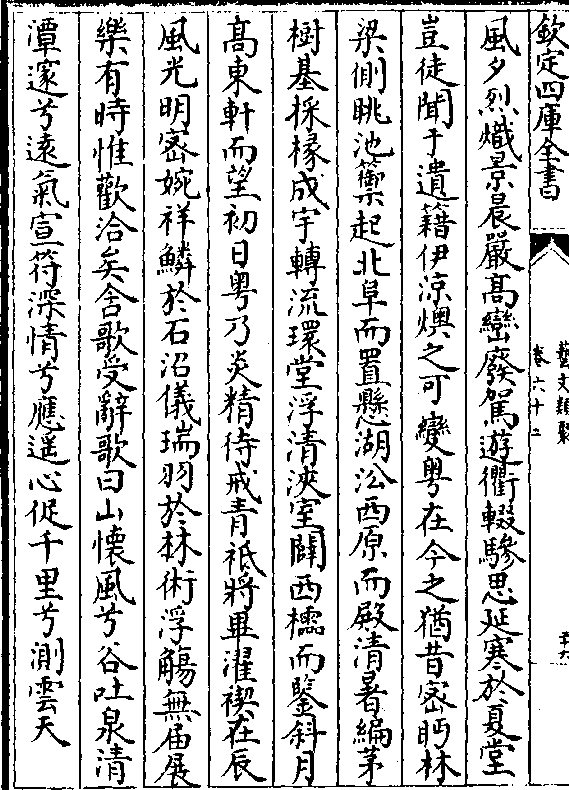 欽定四庫全書
藝文類聚
卷六十二
風夕烈熾景晨嚴高巒廢駕遊衢輟驂思延寒於夏堂
豈徒聞于遺籍伊涼燠之可變粤在今之猶昔密眄林
梁側眺池籞起北阜而置懸湖沿西原而殿清暑編茅
樹基採椽成宇轉流環堂浮清浹室闢西櫺而鑒斜月
高東軒而望初日粤乃炎精待戒青祗將畢濯禊在辰
風光明密婉祥鱗於石沼儀瑞羽於林術浮觴無届展
樂有時惟歡洽矣舍歌受辭歌曰山懷風兮谷吐泉清
潭邃兮遠氣宣符深情兮應遥心促千里兮測雲天